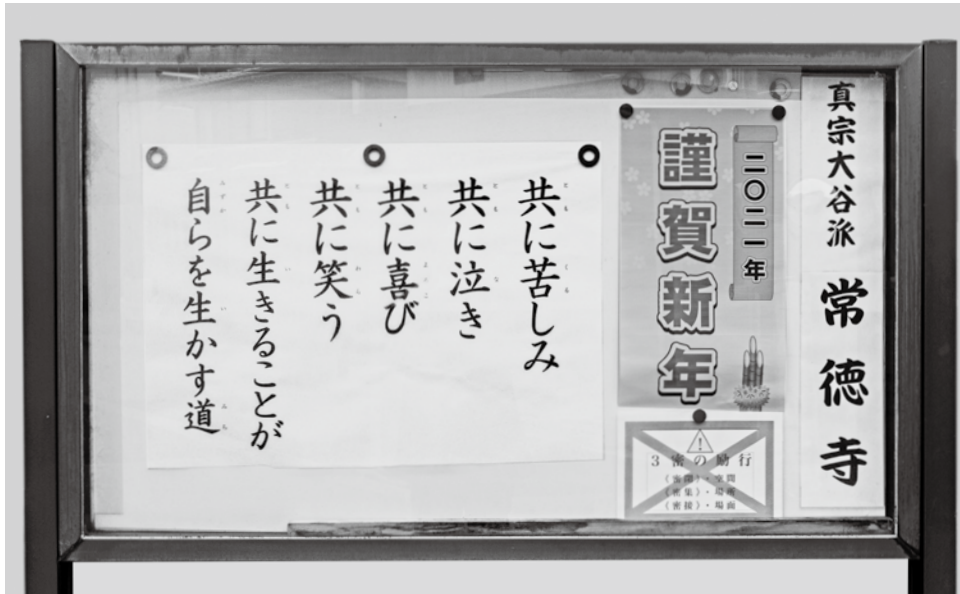 真宗大谷派 常徳寺
二〇二一年
謹賀新年
3密の励行
（密閉）・空間
（密集）・場所
（密接）・場面
共に苦しみ
共に泣き
共に喜び
共に笑う
共に生きることが
自らを生かす道